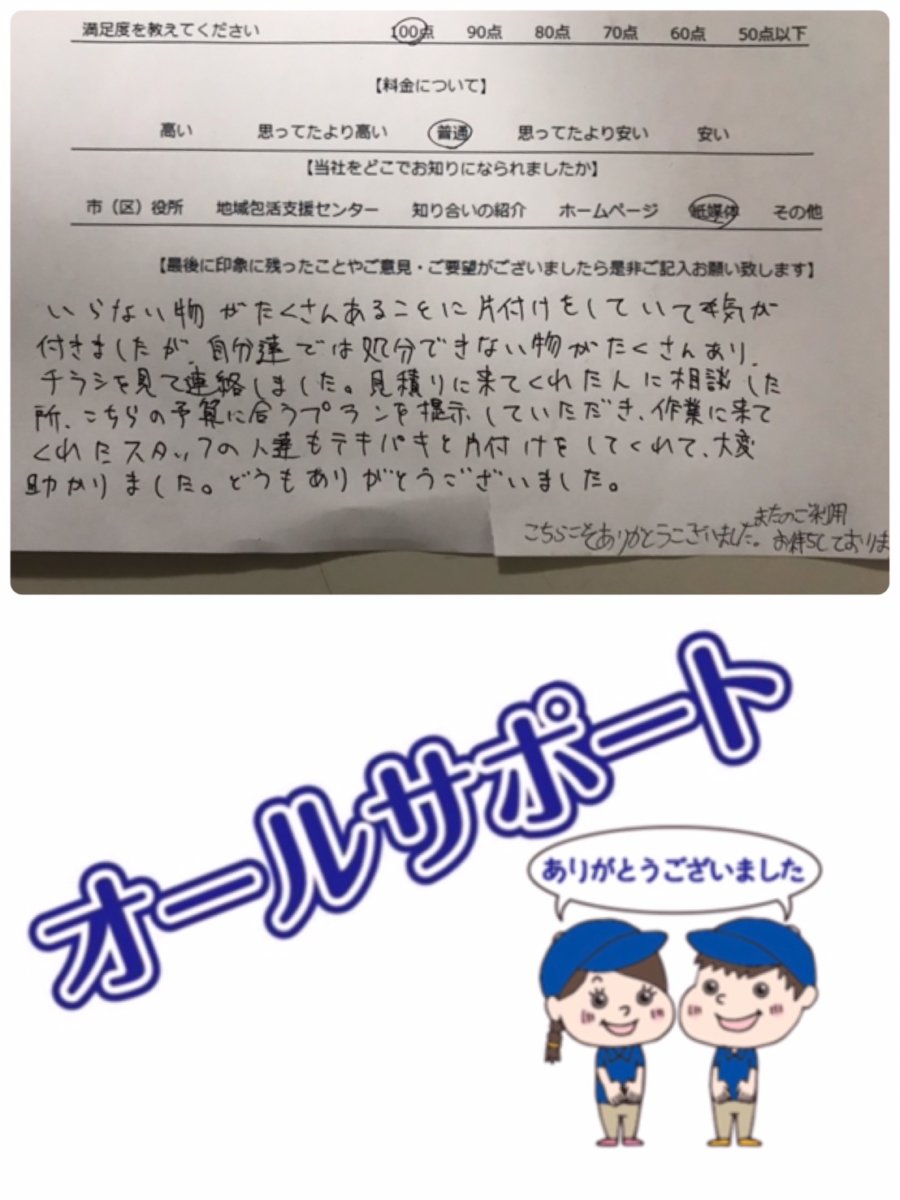 満足度を教えてください 100点 90点 80点 70点 60点 50点以下
【料金について】
高い 思ってたより高い 普通 思ってたより安い 安い
【当社をどこでお知りになられましたか】
市（区）役所 地域包活支援センター 知り合いの紹介 ホームページ 紙媒体 その他
【最後に印象に残ったことやご意見・ご要望がございましたら是非ご記入お願い致します】
いらない物がたくさんあることに片付けをしていて気が
付きましたが、自分達では処分できない物がたくさんあり、
チラシを見て連絡しました。見積りに来てくれた人に相談した
所、こちらの予算に合うプランを提示していただき、作業に来て
くれたスタッフの人達もテキパキと片付けをしてくれて、大変
助かりました。どうもありがとうございました。
こちらこそありがとうございました。またのご利用
お待ちしておりま
オールサポート
ありがとうございました